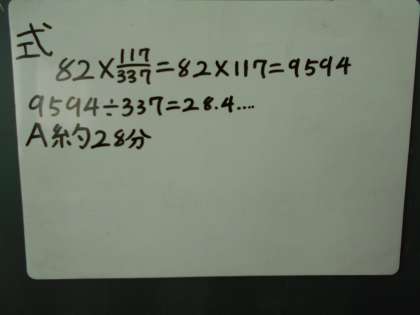 式
82×117/337=82×117=9594
9594÷337=28.4....
A約28分